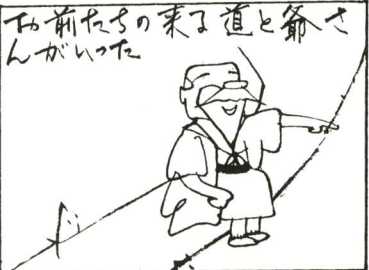 お前たちの来る道と爺さ
んがいった